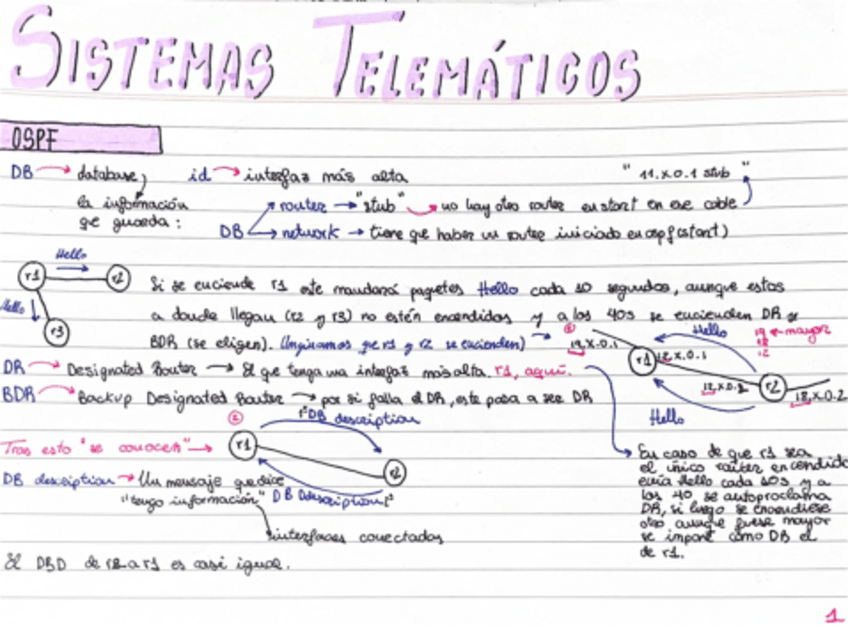 SISTEMAS TELEMÁTICOS
OSPF
DB → database, id → interfaz más alta "11.X.0.1 stub"
la información router → "stub" → no hay otro router en start en ese cable
que guarda: DB network → tiene que haber un router iniciado en ospf (start)
Hello
r1 r2
Hello
r3
Si se enciende r1 este mandará paquetes Hello cada 10 segundos, aunque estos
a donde llegan (r2 y r3) no estén encendidos y a los 40s se encienden DR y
BDR (se eligen). (Imaginamos que r1 y r2 se encienden) →
② Hello 19 ← mayor
19.X.0.1 18
12
r1 12.X.0.1
12.X.0.2 r2
18.X.0.2
Hello
DR → Designated Router → El que tenga una interfaz más alta. r1, aquí.
BDR → Backup Designated Router → por si falla el DR, este pasa a ser DR
② 1º DB description
Tras esto "se conocen" → r1
r2
DB description → Un mensaje que dice
"tengo información" DB Ddescription 1º
interfaces conectadas
El DBD de r2 a r1 es casi igual.
En caso de que r1 sea
el único router encendido
envía Hello cada 10s y a
los 40 se autoproclama
DR, si luego se encendiese
otro, aunque fuese mayor
se impone como DB el
de r1.
1